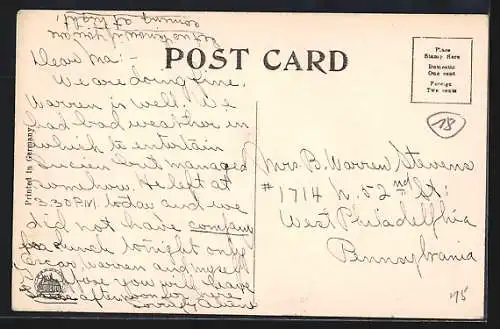 let us know if you are
coming at night.
POST CARD
Place
Stamp Here
Domestic
One cent
Foreign
Two cents
18
Printed in Germany
Dear Ma:-
We are doing fine.
Warren is well. We
had bad weather in
which to entertain
but managed
somehow. He left at
3:30 P.M. today and we
did not have company
for lunch tonight only
Oscar, Warren and myself
Hope you will leave
afternoon
Mrs. B. Warren Stevens
#1714 N. 52nd St.
West Philadelphia
Pennsylvania
75